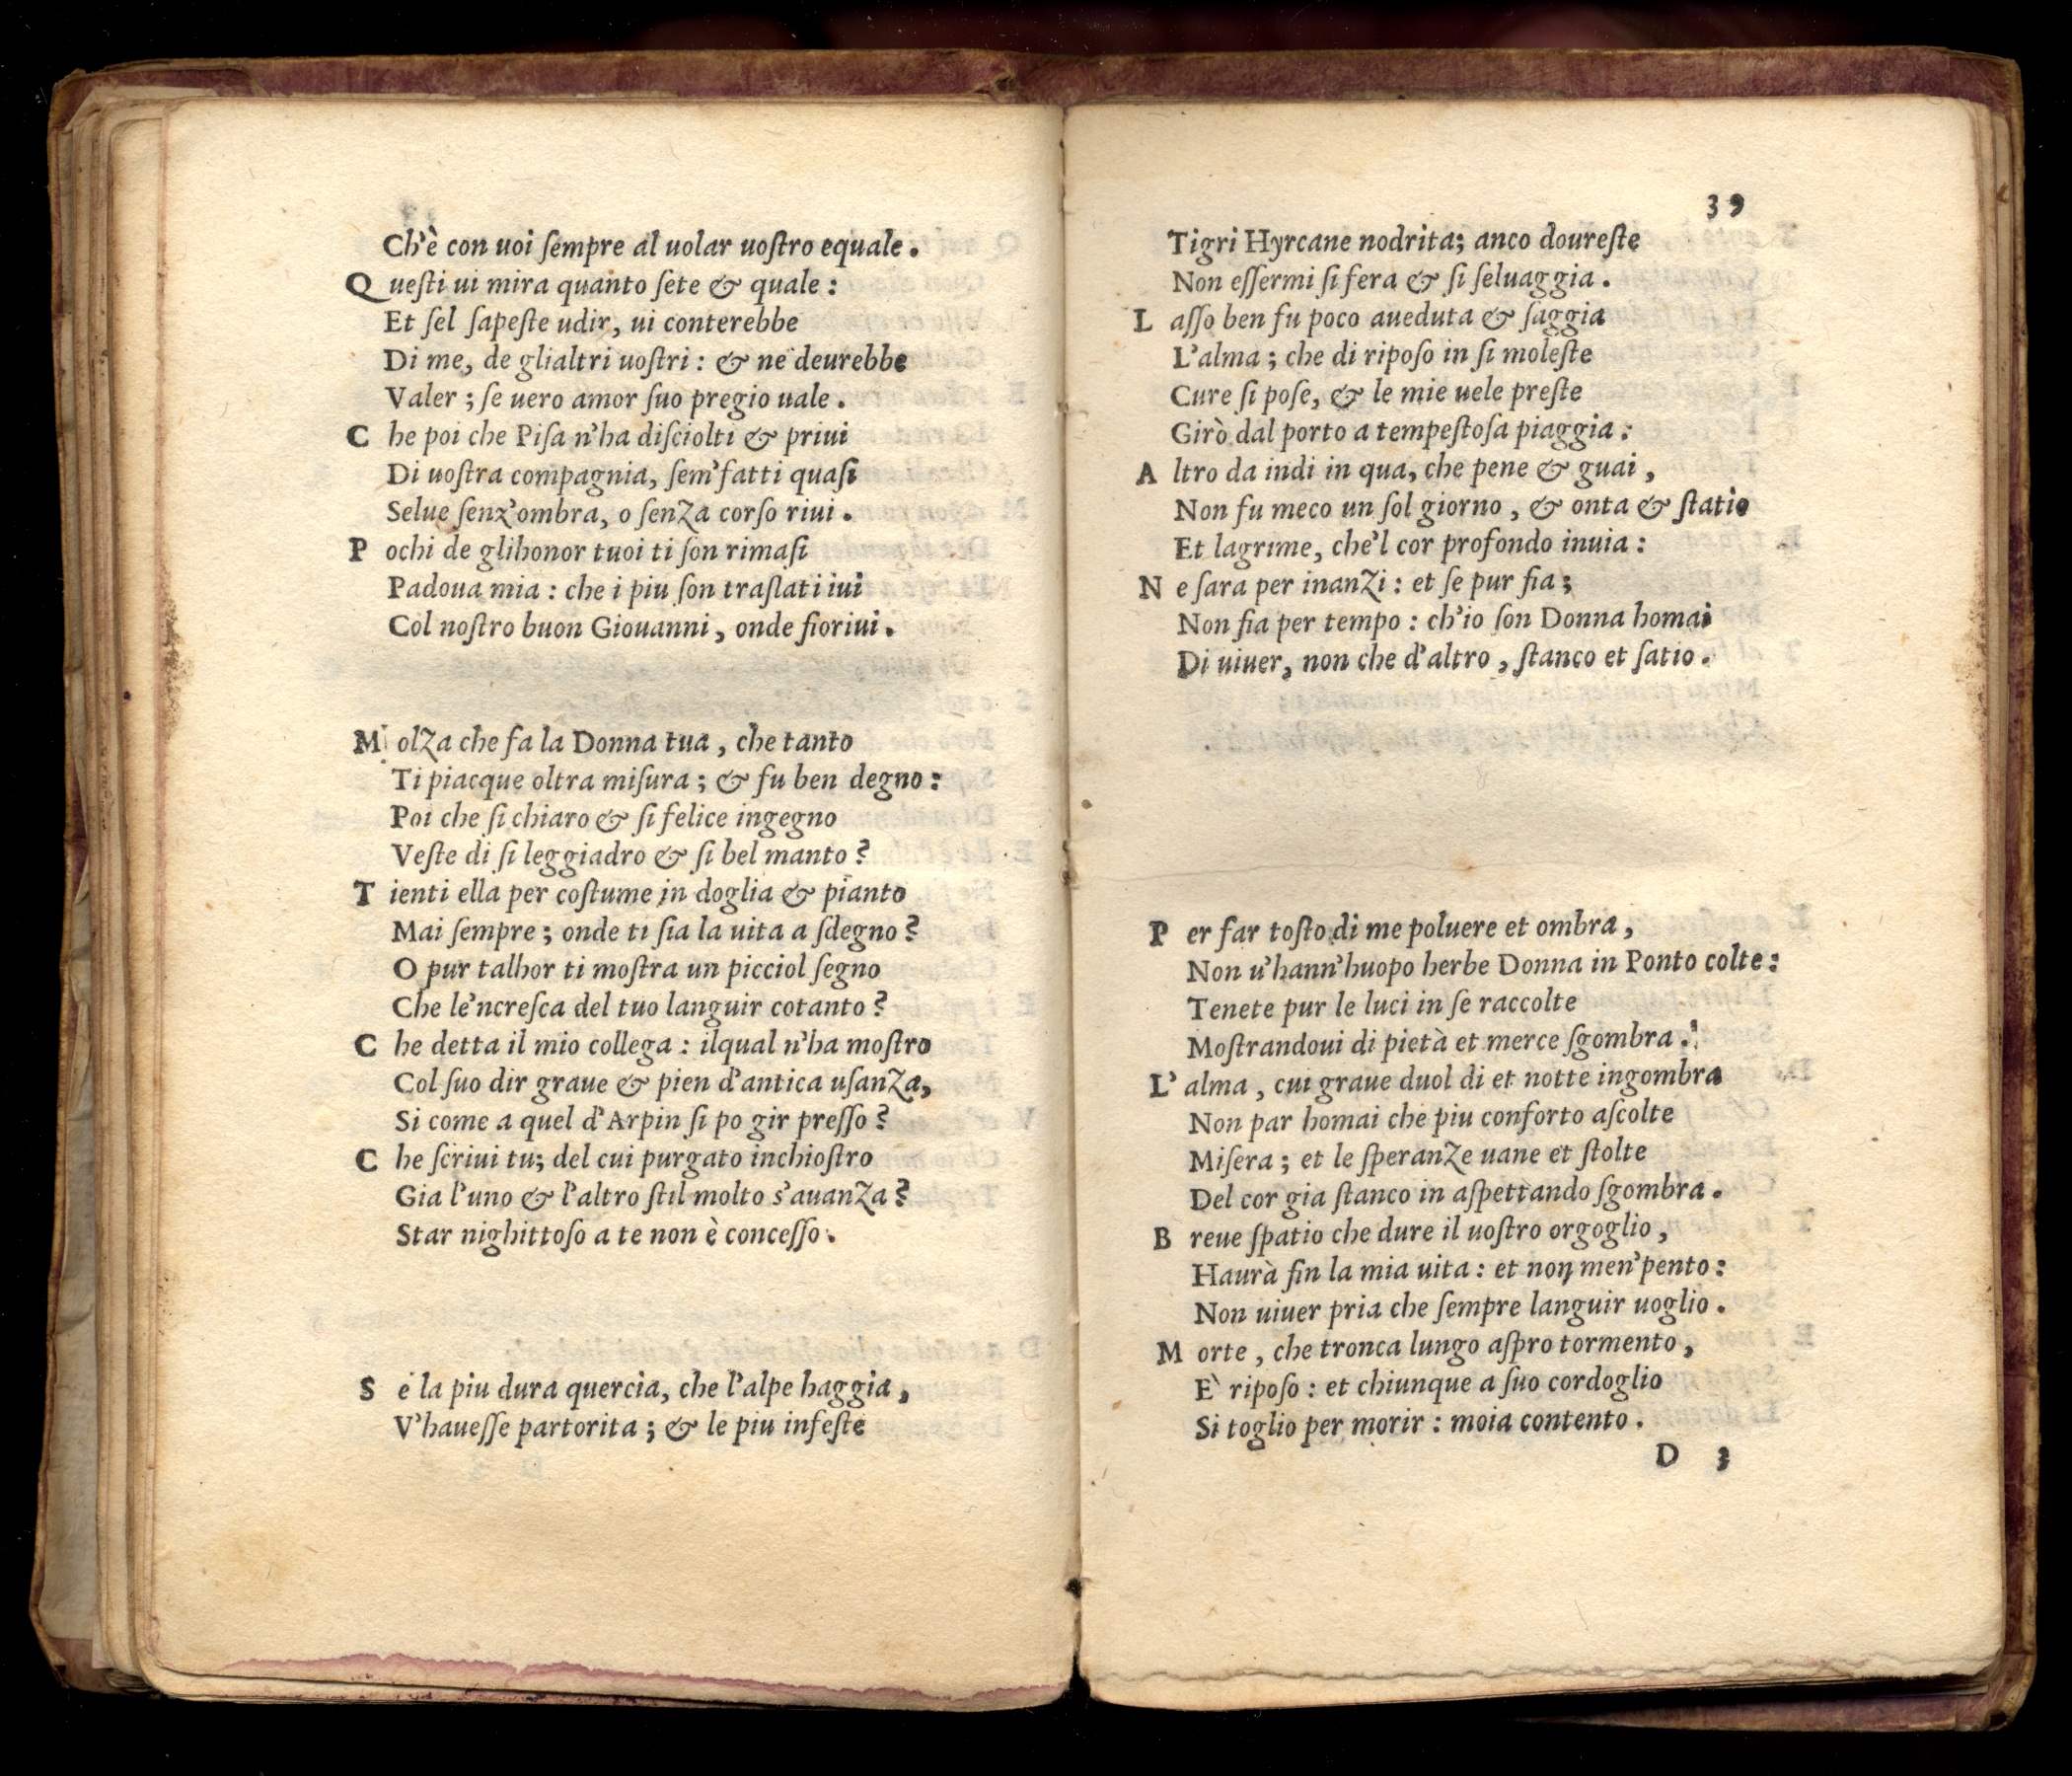 Ch'è con uoi ſempre al uolar uoſtro equale.
Queſti ui mira quanto ſete & quale:
Et ſel ſapeſte udir, ui conterebbe
Di me, de glialtri uoſtri: & ne deurebbe
Valer; ſe uero amor ſuo pregio uale.
Che poi che Piſa n'ha diſciolti & priui
Di uoſtra compagnia, ſem'fatti quaſi
Selue ſenz'ombra, o ſenza corſo riui.
Pochi de glihonor tuoi ti ſon rimaſi
Padoua mia: che i piu ſon traſlati iui
Col noſtro buon Giouanni, onde fioriui.
Molza che fa la Donna tua, che tanto
Ti piacque oltra miſura; & fu ben degno:
Poi che ſi chiaro & ſi felice ingegno
Veſte di ſi leggiadro & ſi bel manto?
Tienti ella per coſtume in doglia & pianto
Mai ſempre; onde ti ſia la uita a ſdegno?
O pur talhor ti moſtra un picciol ſegno
Che le'ncreſca del tuo languir cotanto?
Che detta il mio collega: ilqual n'ha moſtro
Col ſuo dir graue & pien d'antica uſanza,
Si come a quel d'Arpin ſi po gir preſſo?
Che ſcriui tu; del cui purgato inchioſtro
Gia l'uno & l'altro ſtil molto s'auanza?
Star nighittoſo a te non è conceſſo.
Se la piu dura quercia, che l'alpe haggia,
V'haueſſe partorita; & le piu infeſte
39
Tigri Hyrcane nodrita; anco doureſte
Non eſſermi ſi fera & ſi ſeluaggia.
Laſſo ben fu poco aueduta & ſaggia
L'alma; che di ripoſo in ſi moleſte
Cure ſi poſe, & le mie uele preſte
Girò dal porto a tempeſtoſa piaggia:
Altro da indi in qua, che pene & guai,
Non fu meco un ſol giorno, & onta & ſtatio
Et lagrime, che'l cor profondo inuia:
Ne ſara per inanzi: et ſe pur fia;
Non fia per tempo: ch'io ſon Donna homai
Di uiuer, non che d'altro, ſtanco et ſatio.
Per far toſto di me poluere et ombra,
Non u'hann'huopo herbe Donna in Ponto colte:
Tenete pur le luci in ſe raccolte
Moſtrandoui di pietà et merce ſgombra.
L'alma, cui graue duol di et notte ingombra
Non par homai che piu conforto aſcolte
Miſera; et le ſperanze uane et ſtolte
Del cor gia ſtanco in aſpettando ſgombra.
Breue ſpatio che dure il uoſtro orgoglio,
Haurà fin la mia uita: et non men'pento:
Non uiuer pria che ſempre languir uoglio.
Morte, che tronca lungo aſpro tormento,
E' ripoſo: et chiunque a ſuo cordoglio
Si toglio per morir: moia contento.
D 3